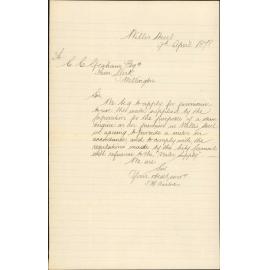 Willis Street
9th April 187
To
C. C. Graham Esqre
Town Clerk
Wellington
Sir
We beg to apply for permission
to use the water supplied by the
Corporation for the purposes of a steam
engine on our premises in Willis Street
in agreeing to provide a meter in
accordance and to comply with the
regulations made by the City Council
with reference to the "Water Supply"
We are
Sir
Your Obedient